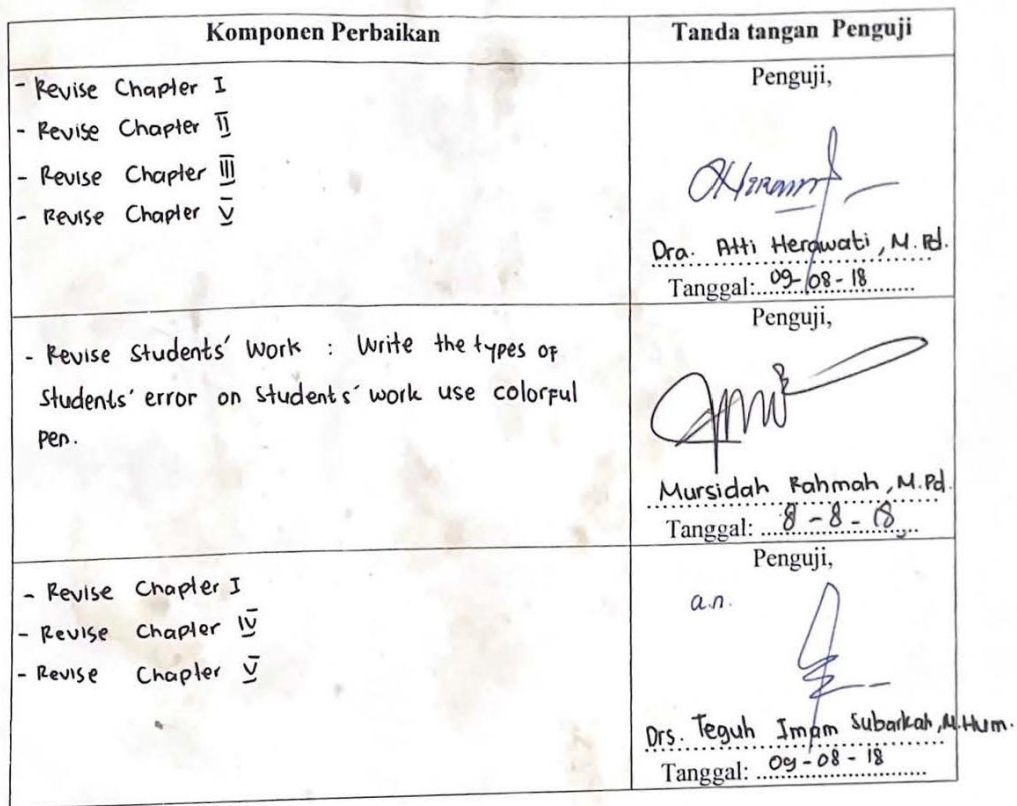 Komponen Perbaikan
Tanda tangan Penguji
- Revise Chapter I
- Revise Chapter II
- Revise Chapter III
- Revise Chapter V
Penguji,
Dra. Atti Herawati, M.Pd.
Tanggal: 09-08-18
- Revise Students' Work : Write the types of
students' error on students' work use colorful
pen.
Penguji,
Mursidah Rahmah, M.Pd.
Tanggal: 8-8-18
- Revise Chapter I
- Revise Chapter IV
- Revise Chapter V
Penguji,
a.n.
Drs. Teguh Imam Subarkah, M.Hum.
Tanggal: 09-08-18